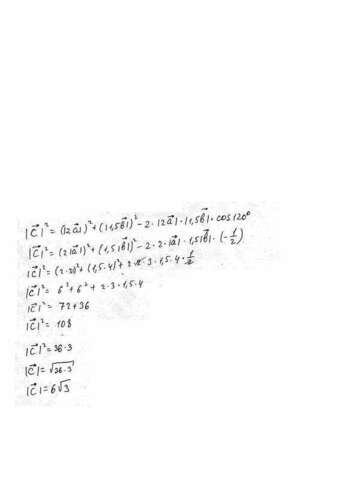 |c⃗|² = (|2a⃗|)² + (|1,5b⃗|)² - 2 · |2a⃗| · |1,5b⃗| · cos120°
|c⃗|² = (2|a⃗|)² + (1,5|b⃗|)² - 2 · 2 · |a⃗| · 1,5|b⃗| · (-1/2)
|c⃗|² = (2·3)² + (1,5·4)² + 2·2·3·1,5·4·1/2
|c⃗|² = 6² + 6² + 2·3·1,5·4
|c⃗|² = 72+36
|c⃗|² = 108
|c⃗|² = 36·3
|c⃗| = √36·3
|c⃗| = 6√3